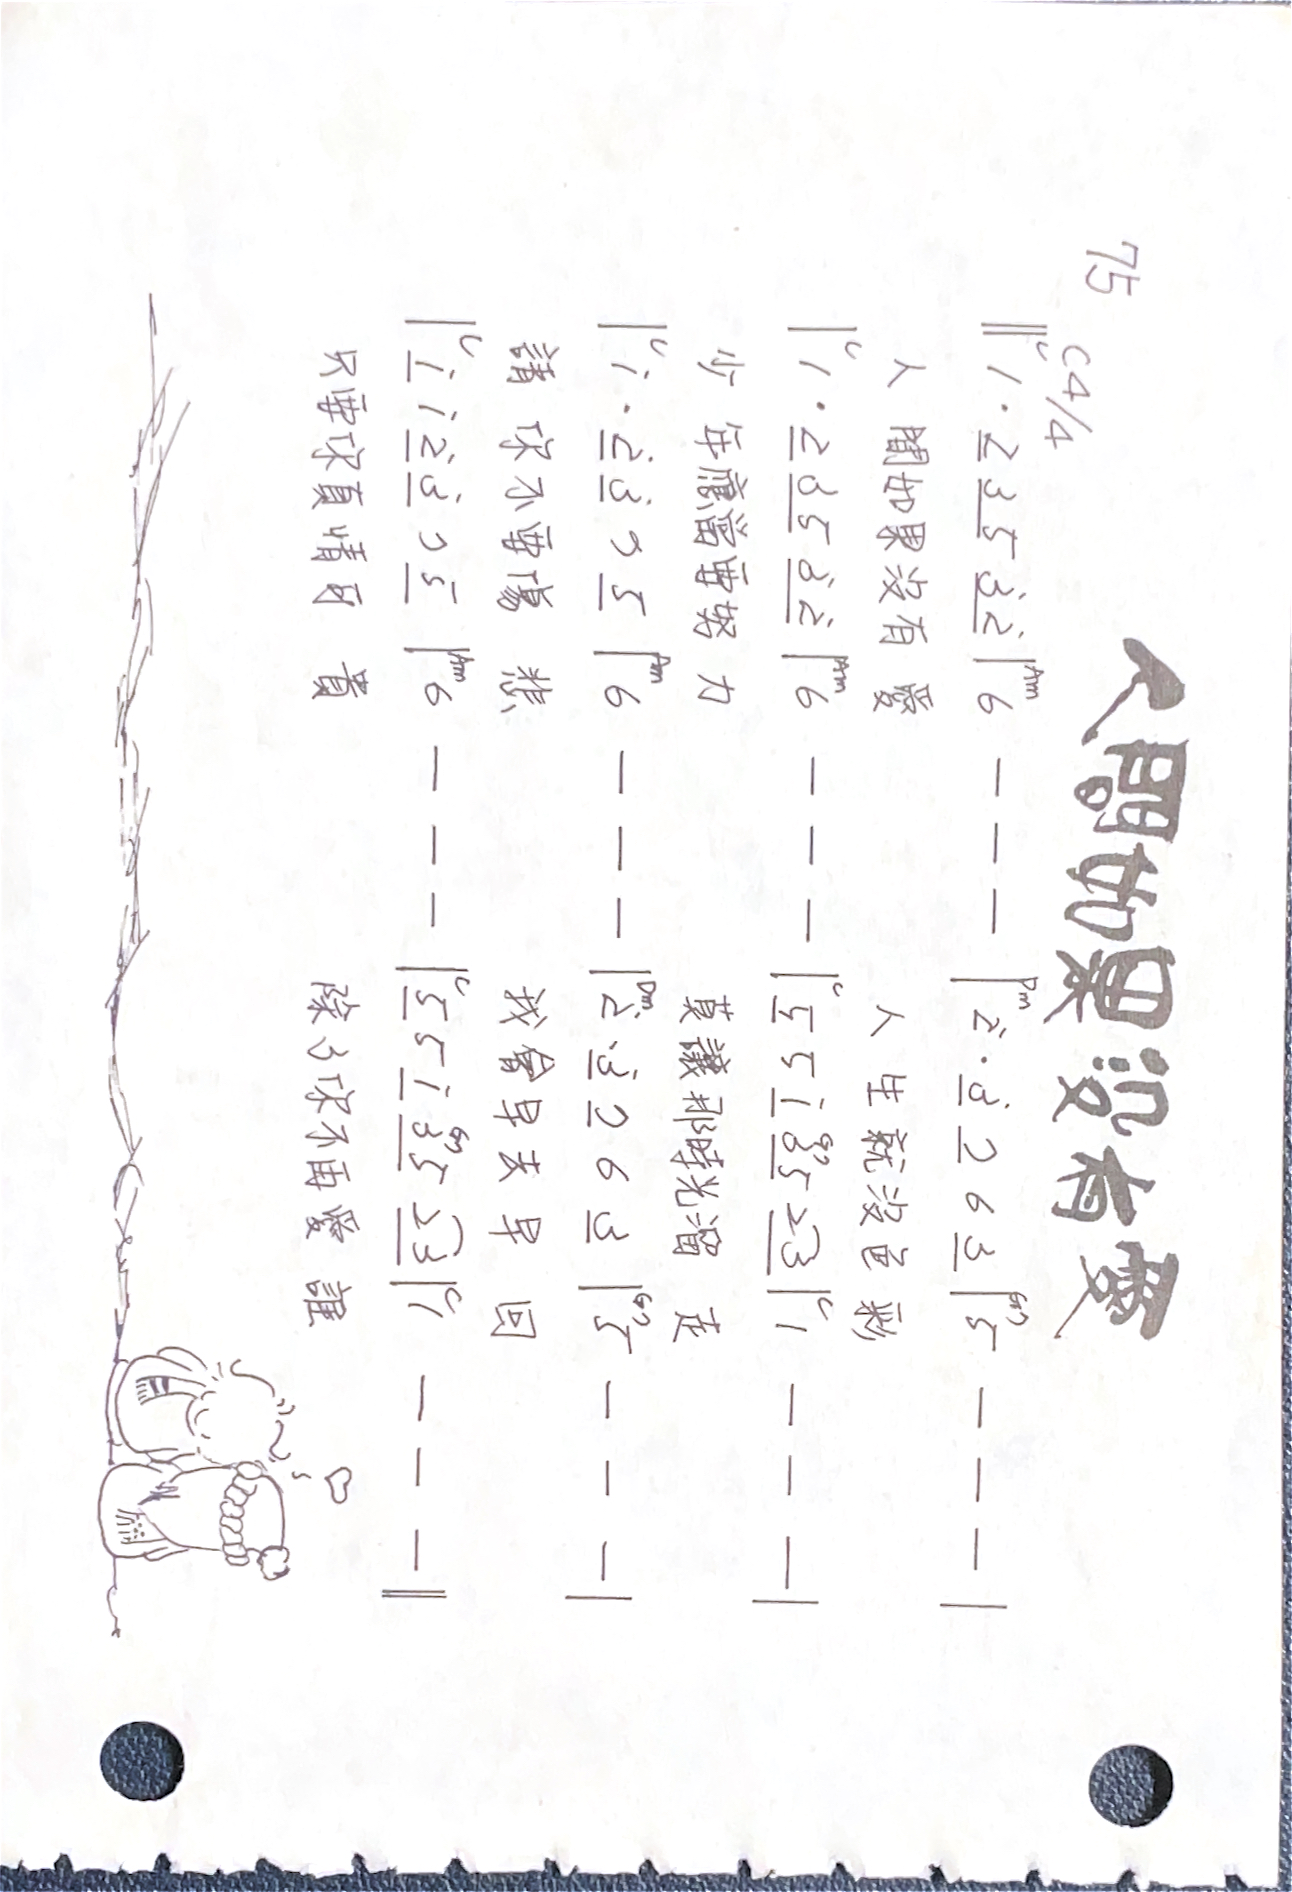 人間如果沒有愛
75
C4/4
‖C 1 · 2 3 5 3̇ 2̇ |Am 6 — — — |Dm 2̇ · 3̇ 7 6 3 |G7 5 — — — |
人 間如果沒有 愛 人 生就沒色 彩
|C 1 · 2 3 5 3̇ 2̇ |Am 6 — — — |C 5 5 1̇ G7 3 5 2 3 |C 1 — — — |
少 年應當要努 力 莫讓那時光溜 走
|C 1̇ · 2̇ 3̇ 7 5 |Am 6 — — — |Dm 2̇ · 3̇ 7 6 3 |G7 5 — — — |
請 你不要傷 悲 我會早去早 回
|C 1̇ 1̇ 2̇ 3̇ 7 5 |Am 6 — — — |C 5 5 1̇ G7 3 5 2 3 |C 1 — — — ‖
只要你真情可 貴 除了你不再愛 誰